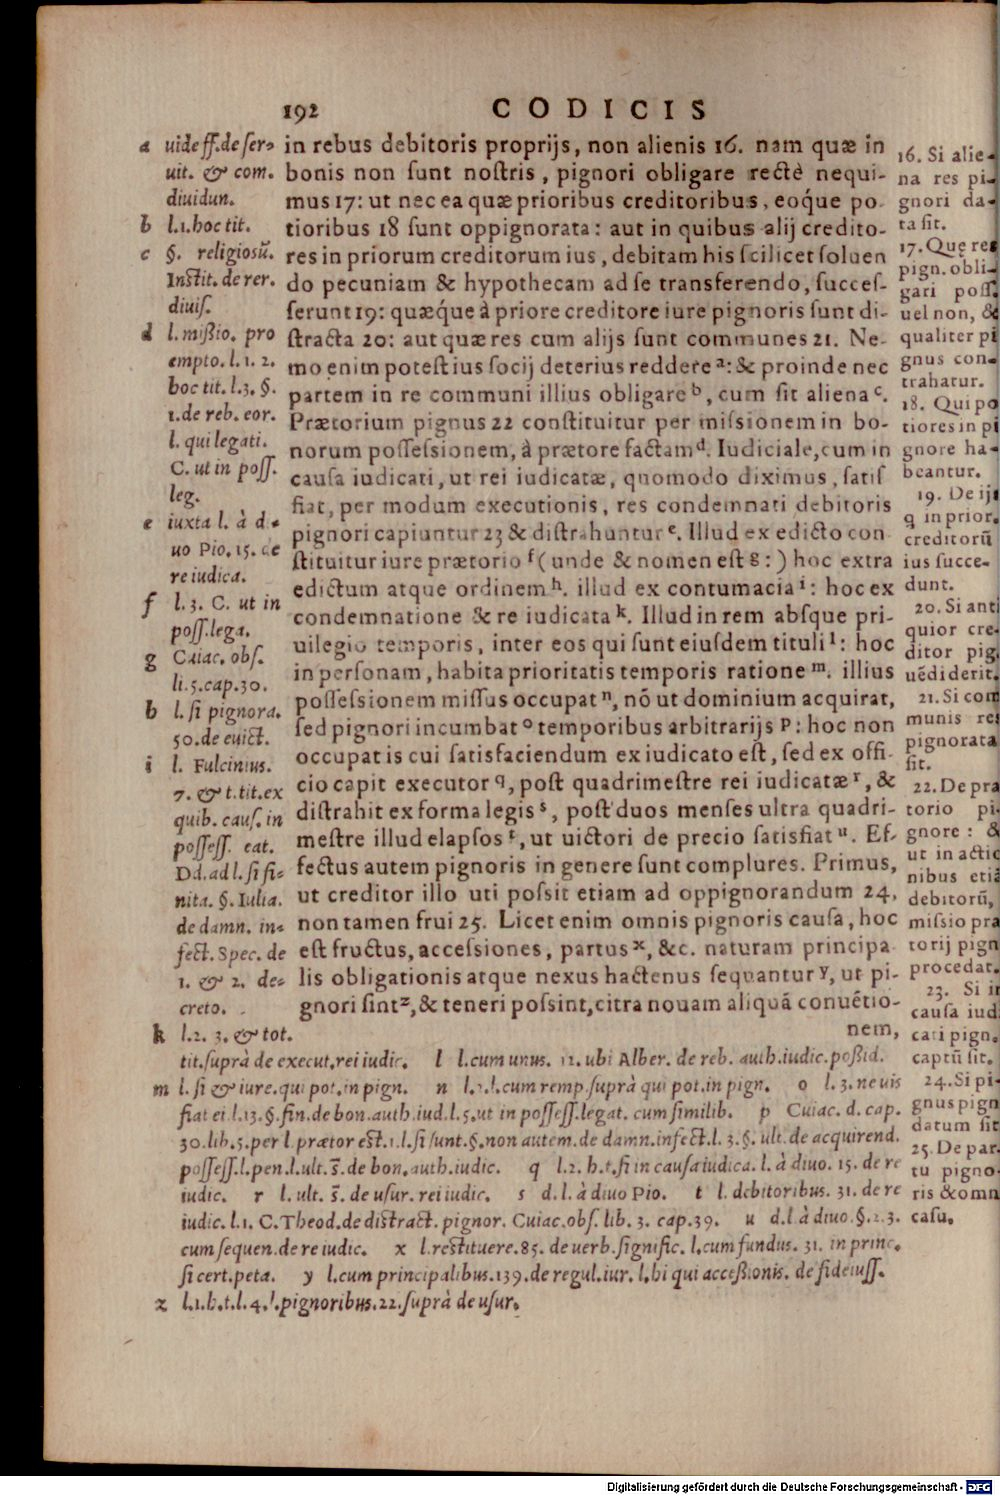 192 CODICIS
in rebus debitoris proprijs, non alienis 16. nam quæ in
bonis non sunt nostris, pignori obligare rectè nequi-
mus 17: ut nec ea quæ prioribus creditoribus, eoq́ue po-
tioribus 18 sunt oppignorata: aut in quibus alij credito-
res in priorum creditorum ius, debitam his scilicet soluen
do pecuniam & hypothecam ad se transferendo, succes-
serunt 19: quæq́ue à priore creditore iure pignoris sunt di-
stracta 20: aut quæ res cum alijs sunt communes 21. Ne-
mo enim potest ius socij deterius reddere a: & proinde nec
partem in re communi illius obligare b, cum sit aliena c.
Prætorium pignus 22 constituitur per missionem in bo-
norum possessionem, à prætore factam d. Iudiciale, cum in
causa iudicati, ut rei iudicatæ, quomodo diximus, satis
fiat, per modum executionis, res condemnati debitoris
pignori capiuntur 23 & distrahuntur e. Illud ex edicto con
stituitur iure prætorio f (unde & nomen est g:) hoc extra
edictum atque ordinem h. illud ex contumacia i: hoc ex
condemnatione & re iudicata k. Illud in rem absque pri-
uilegio temporis, inter eos qui sunt eiusdem tituli l: hoc
in personam, habita prioritatis temporis ratione m. illius
possessionem missus occupat n, nō ut dominium acquirat,
sed pignori incumbat o temporibus arbitrarijs p: hoc non
occupat is cui satisfaciendum ex iudicato est, sed ex offi-
cio capit executor q, post quadrimestre rei iudicatæ r, &
distrahit ex forma legis s, post duos menses ultra quadri-
mestre illud elapsos t, ut uictori de precio satisfiat u. Ef-
fectus autem pignoris in genere sunt complures. Primus,
ut creditor illo uti possit etiam ad oppignorandum 24,
non tamen frui 25. Licet enim omnis pignoris causa, hoc
est fructus, accessiones, partus x, &c. naturam principa
lis obligationis atque nexus hactenus sequantur y, ut pi-
gnori sint z, & teneri possint, citra nouam aliquā conuētio-
nem,
a uide ff. de ser-
uit. & com.
diuidun.
b l.1. hoc tit.
c §. religiosū.
Instit. de rer.
diuis.
d l. missio. pro
empto. l. 1. 2.
hoc tit. l.3. §.
1. de reb. eor.
l. qui legati.
C. ut in poss.
leg.
e iuxta l. à d-
uo Pio. 15. de
re iudica.
f l. 3. C. ut in
poss. lega.
g Cuiac. obs.
li. 5. cap. 30.
h l. si pignora.
50. de euict.
i l. Fulcinius.
7. & t. tit. ex
quib. caus. in
possess. eat.
Dd. ad l. si fi-
nita. §. Iulia.
de damn. in-
fect. Spec. de
1. & 2. de-
creto.
k l.2. 3. & tot.
tit. suprà de execut. rei iudic. l l. cum unus. 12. ubi Alber. de reb. auth. iudic. possid.
m l. si & iure. qui pot. in pign. n l.2. l. cum remp. suprà qui pot. in pign. o l. 3. ne uis
fiat ei. l.13. §. fin. de bon. auth. iud. l. 5. ut in possess. legat. cum similib. p Cuiac. d. cap.
30. lib. 5. per l. prætor est. 1. l. si sunt. §. non autem. de damn. infect. l. 3. §. ult. de acquirend.
possess. l. pen. l. ult. s̄. de bon. auth. iudic. q l.2. h. t. si in causa iudica. l. à diuo. 15. de re
iudic. r l. ult. s̄. de usur. rei iudic. s d. l. à diuo Pio. t l. debitoribus. 31. de re
iudic. l. 1. C. Theod. de distract. pignor. Cuiac. obs. lib. 3. cap. 39. u d. l. à diuo. §. 2. 3.
cum sequen. de re iudic. x l. restituere. 85. de uerb. signific. l. cum fundus. 31. in princ.
si cert. peta. y l. cum principalibus. 139. de regul. iur. l. hi qui accessionis. de fideiuss.
z l.1. h. t. l. 4. l. pignoribus. 22. suprà de usur.
16. Si alie-
na res pi-
gnori da-
ta sit.
17. Quę res
pign. obli-
gari poss.
uel non, &
qualiter pi
gnus con-
trahatur.
18. Qui po
tiores in pi
gnore ha-
beantur.
19. De ijs
q in prior.
creditorū
ius succe-
dunt.
20. Si anti
quior cre-
ditor pig.
uēdiderit.
21. Si com
munis res
pignorata
sit.
22. De præ
torio pi-
gnore: &
ut in actio
nibus etiā
debitorū,
missio præ
torij pign
procedat.
23. Si in
causa iud.
cati pign.
captū sit.
24. Si pi-
gnus pign
datum sit
25. De par.
tu pigno-
ris & omn
casu.
Digitalisierung gefördert durch die Deutsche Forschungsgemeinschaft - DFG